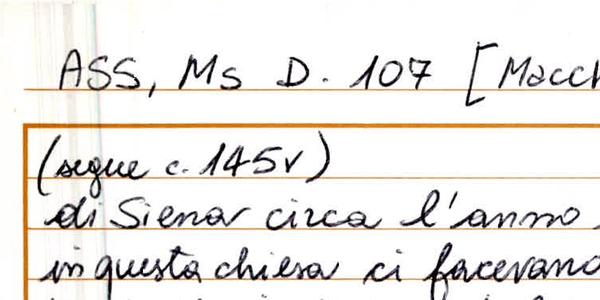 ASS, Ms D. 107 [Macch
(segue c. 145v)
di Siena circa l'anno
in questa chiesa ci facevano